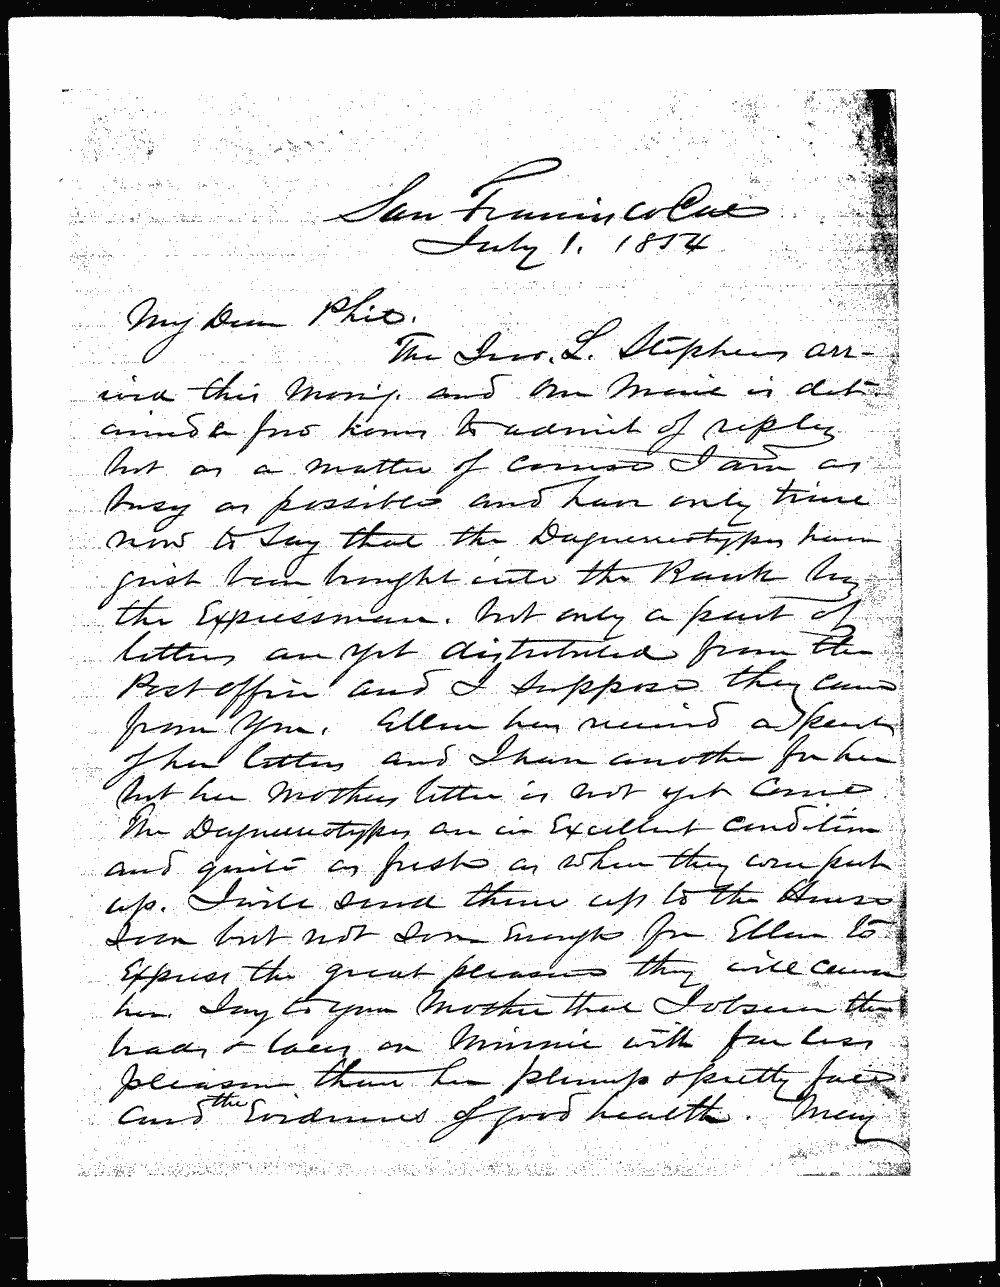 San Francisco Cal
July 1. 1854
My Dear Phil.
The Jno. L. Stephens arr-
ived this Morng. and our Mail is det-
ained a few hours to admit of reply
but as a matter of course I am as
busy as possible and have only time
now to say that the Daguerreotypes have
just been brought into the Bank by
the Expressman. but only a part of
letters are yet distributed from the
Post office and I suppose they came
from you. Ellen has received a part
of her letters and I have another for her
but her Mothers letter is not yet come
The Daguerreotypes are in Excellent condition
and quite as fresh as when they were put
up. I will send them up to the House
soon but not soon Enough for Ellen to
Express the great pleasure they will cause
her. Say to your Mother that I observe the
beads & laces on Minnie with far less
pleasure than her plump & pretty face
and the Evidences of good health. Mary